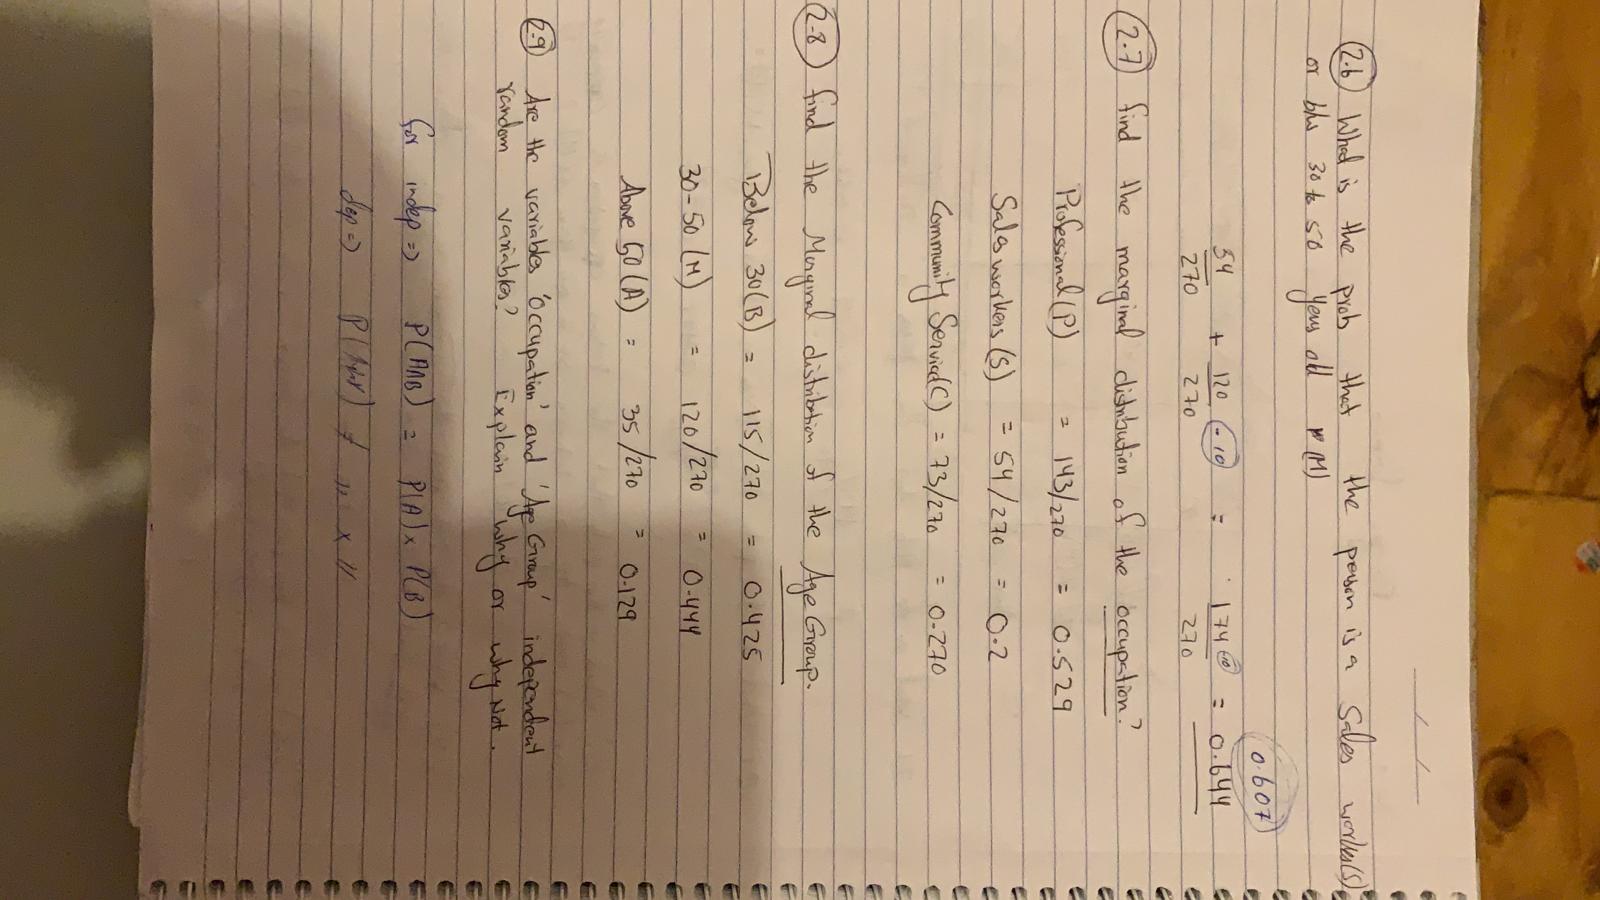 2.6 What is the prob that the person is a Sales worker(S)
or b/w 30 to 50 years old (M)
54/270 + 120/270 -10 = 174 -10/270 = 0.644
0.607
2.7 find the marginal distribution of the occupation?
Professional (P) = 143/270 = 0.529
Sales workers (S) = 54/270 = 0.2
Community Service(C) = 73/270 = 0.270
2.8 find the Marginal distribution of the Age Group.
Below 30 (B) = 115/270 = 0.425
30-50 (M) = 120/270 = 0.444
Above 50 (A) = 35/270 = 0.129
2.9 Are the variables 'Occupation' and 'Age Group' independent
random variables? Explain why or why Not.
for indep => P(A∩B) = P(A) x P(B)
dep => ≠ " x "